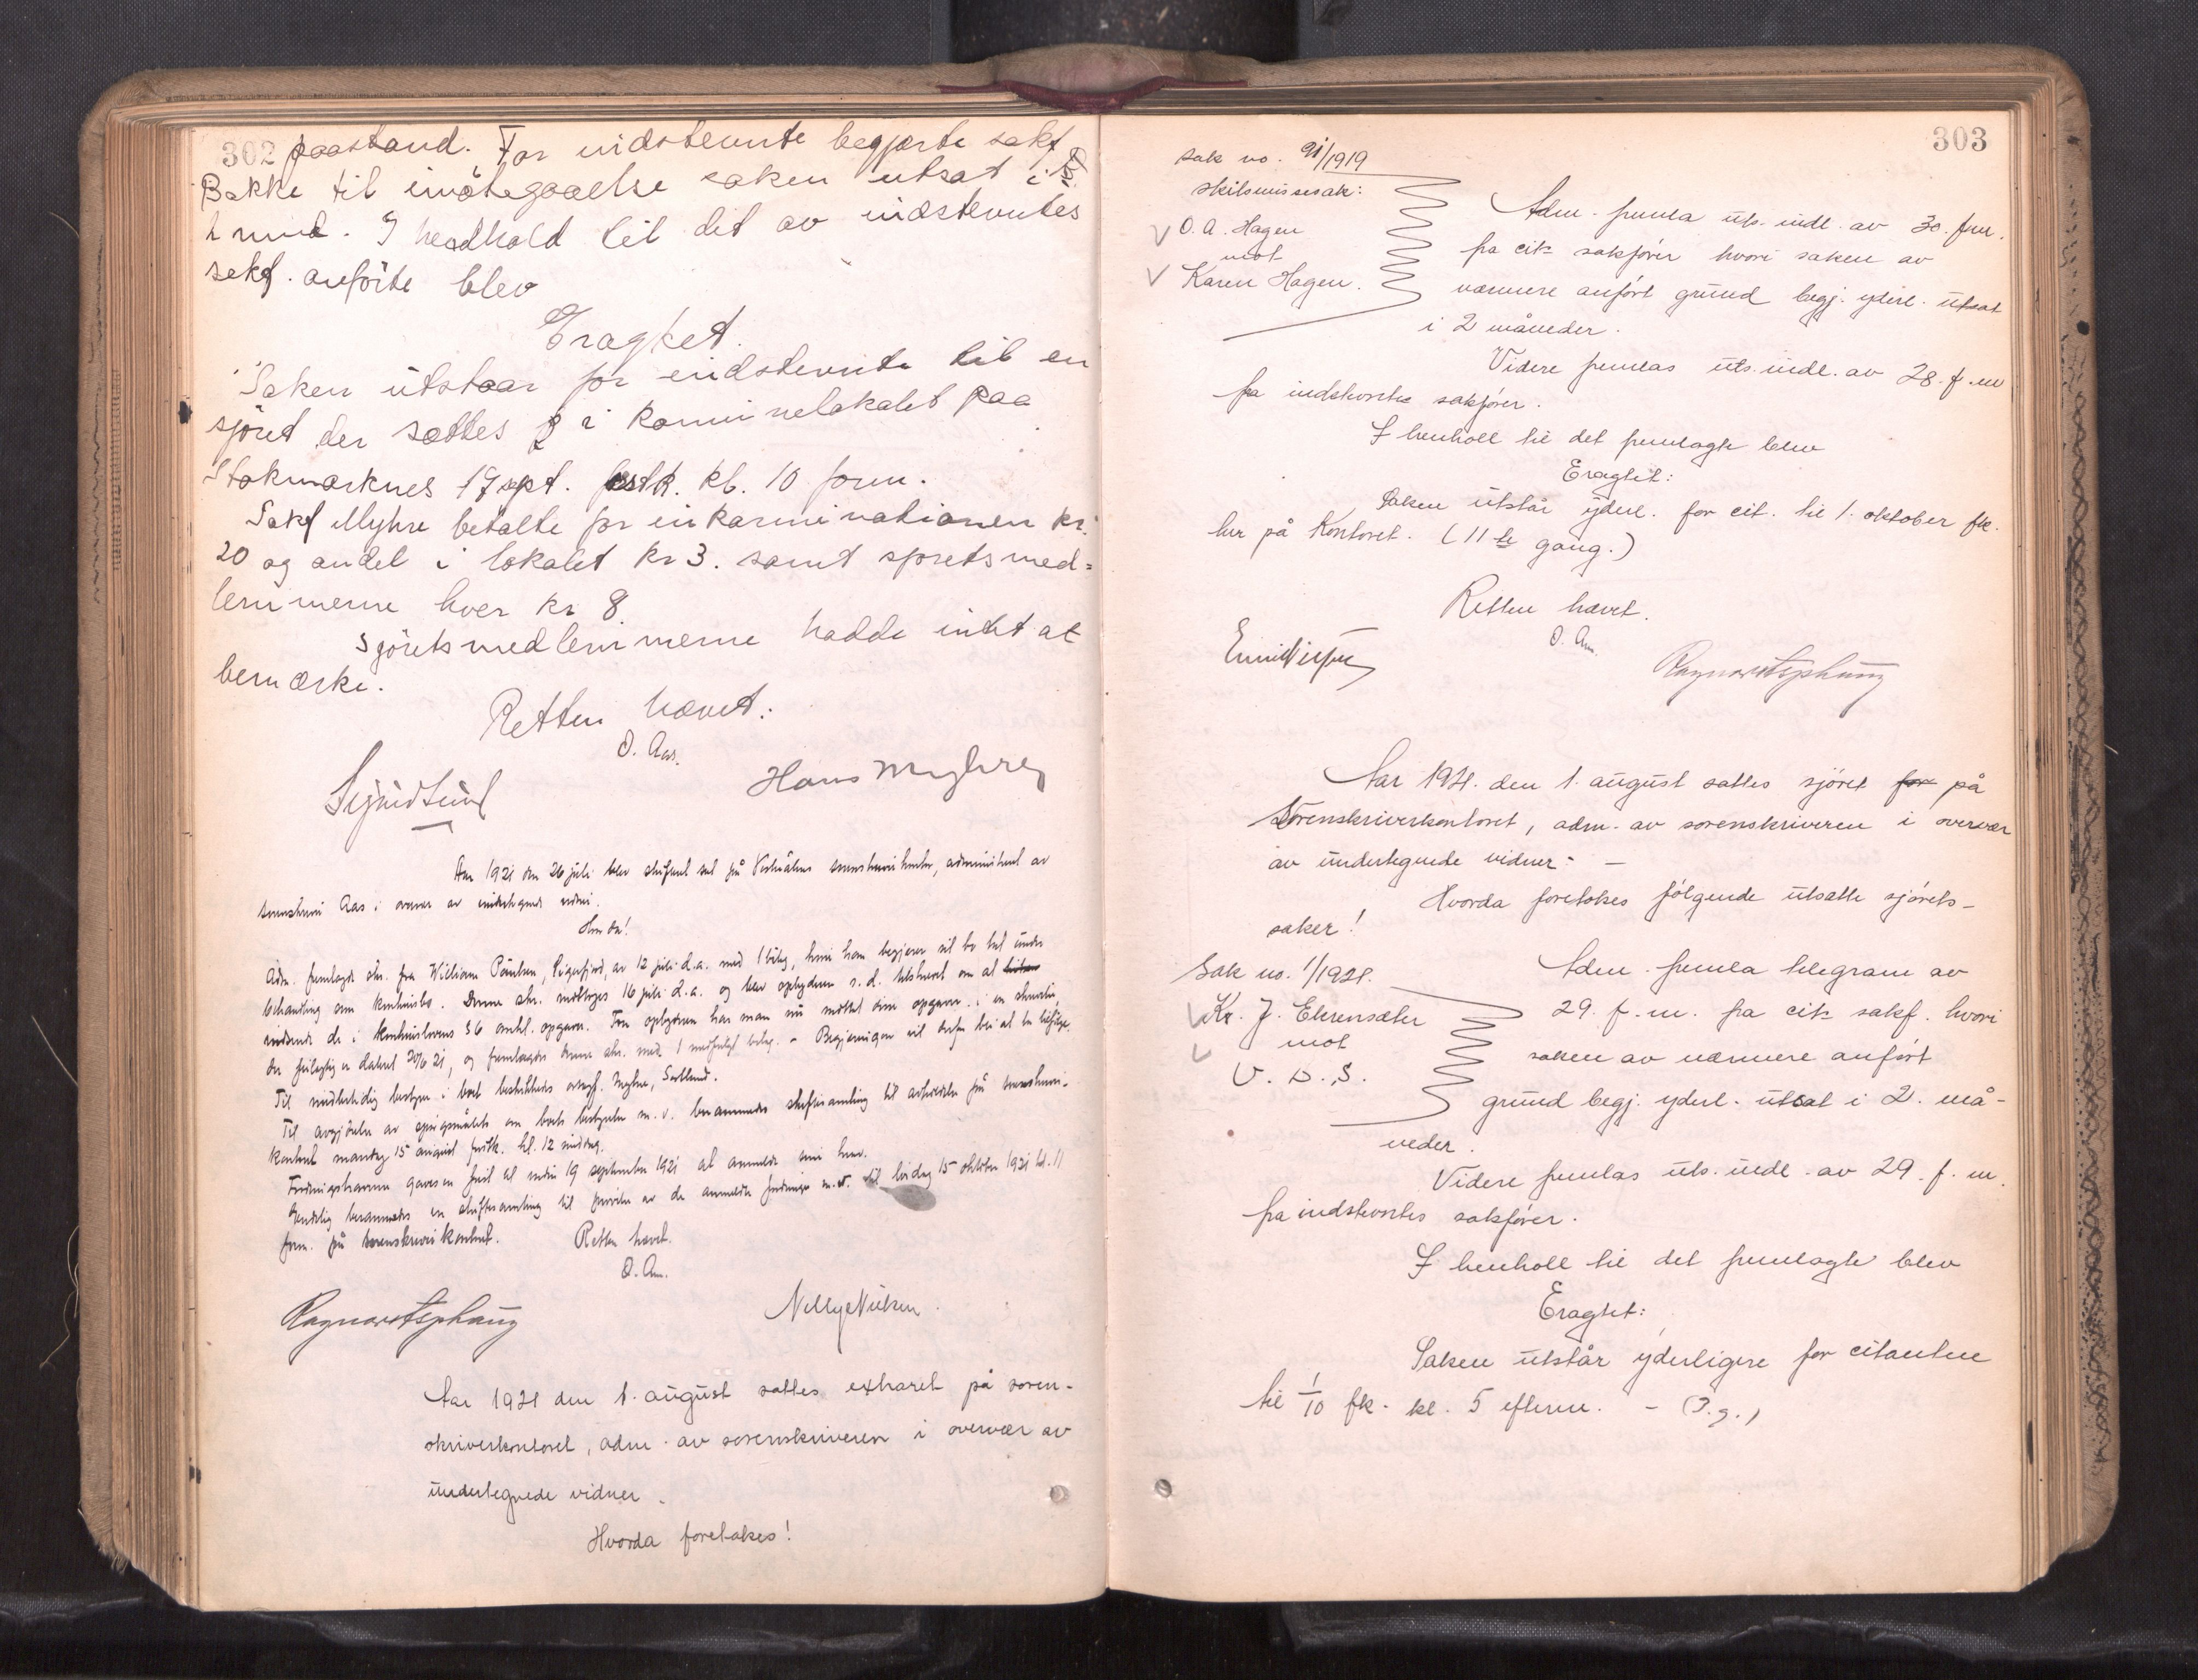 302 paastand. For indstevnte begjærte sakf.
Bakke til imøtegaaelse saken utsat i
1 mnd. I henhold til det av indstevntes
sakf. anførte blev
Eragtet.
Saken utstaar for indstevnte til en
sjøret der sættes i lokalet paa
Stokmarknes 17 sept. førstk. kl. 10 form.
Sakf Myhre betalte for inkaminationen kr.
20 og andel i lokalet kr 3. samt sjøretsmed=
lemmerne hver kr 8.
Sjøretsmedlemmerne hadde intet at
bemærke.
Retten hævet:
O. Aas.
Sigurd Lund
Hans Myhre
Aar 1921 den 26 juli blev skifteret sat på Vesterålens sorenskriverkontor, administrert av
sorenskriver Aas i overvær av undertegnede vidner.
Hvorda!
Adm. fremlagde skr. fra William Paulsen, Sigerfjord, av 12 juli d.a. med 1 bilag, hvori han begjærer sit bo tat under
behandling som konkursbo. Denne skr. mottoges 16 juli d.a. og blev opbyderen s.d. tilskrevet om at
indsende de i konkurslovens § 6 omhl. opgaver. Fra opbyderen har man nu mottat disse opgaver i en skrivelse,
der feilagtig er dateret 20/6 21, og fremlægges denne skr. med 1 medfulgt bilag. - Begjæringen vil derfor bli at ta tilfølge.
Til midlertidig bestyrer i boet beskikkedes overrsf. Myhre, Sortland.
Til avgjørelse av spørgsmålet om boets bestyrelse m.v. berammedes skiftesamling til avholdelse på sorenskriver-
kontoret mandag 15 august førstk. kl. 12 middag.
Fordringshaverne gaves en frist til inden 19 september 1921 at anmelde sine krav.
Endelig berammedes en skiftesamling til prøvelse av de anmeldte fordringer m.v. til lørdag 15 oktober 1921 kl. 11
form. på sorenskriverkontoret.
Retten hævet.
O. Aas.
Ragnar Asphaug
Nelly Nilsen.
Aar 1921 den 1. august sattes extraret på soren-
skriverkontoret, adm. av sorenskriveren i overvær av
undertegnede vidner.
Hvorda foretokes!
303
Sak no. 91/1919
skilsmissesak:
O. A. Hagen
mot
Karen Hagen.
Adm. fremla uts. indl. av 30. f.m.
fra cit. sakfører hvori saken av
nærmere anført grund begj. yderl. utsat
i 2 måneder.
Videre fremlas uts. indl. av 28. f.m
fra indstevntes sakfører.
I henholl til det fremlagte blev
Eragtet:
Saken utstår yderl. for cit. til 1. oktober fk.
her på Kontoret. (11te gang.)
Retten hævet.
O. Aas.
Emil Nilsen
Ragnar Asphaug
Aar 1921. den 1. august sattes sjøret for på
Sorenskriverkontoret, adm. av sorenskriveren i overvær
av undertegnede vidner: -
Hvorda foretokes følgende utsatte sjørets-
saker!
Sak no. 1/1921.
Kr. J. Ehrensæter
mot
V. D. S.
Adm. fremla telegram av
29. f.m. fra cit. sakf. hvori
saken av nærmere anført
grund begj. yderl. utsat i 2. må-
neder.
Videre fremlas uts. indl. av 29. f.m.
fra indstevntes sakfører.
I henholl til det fremlagte blev
Eragtet:
Saken utstår yderligere for citanten
til 1/10 fk. kl. 5 efterm. - (3.g.)